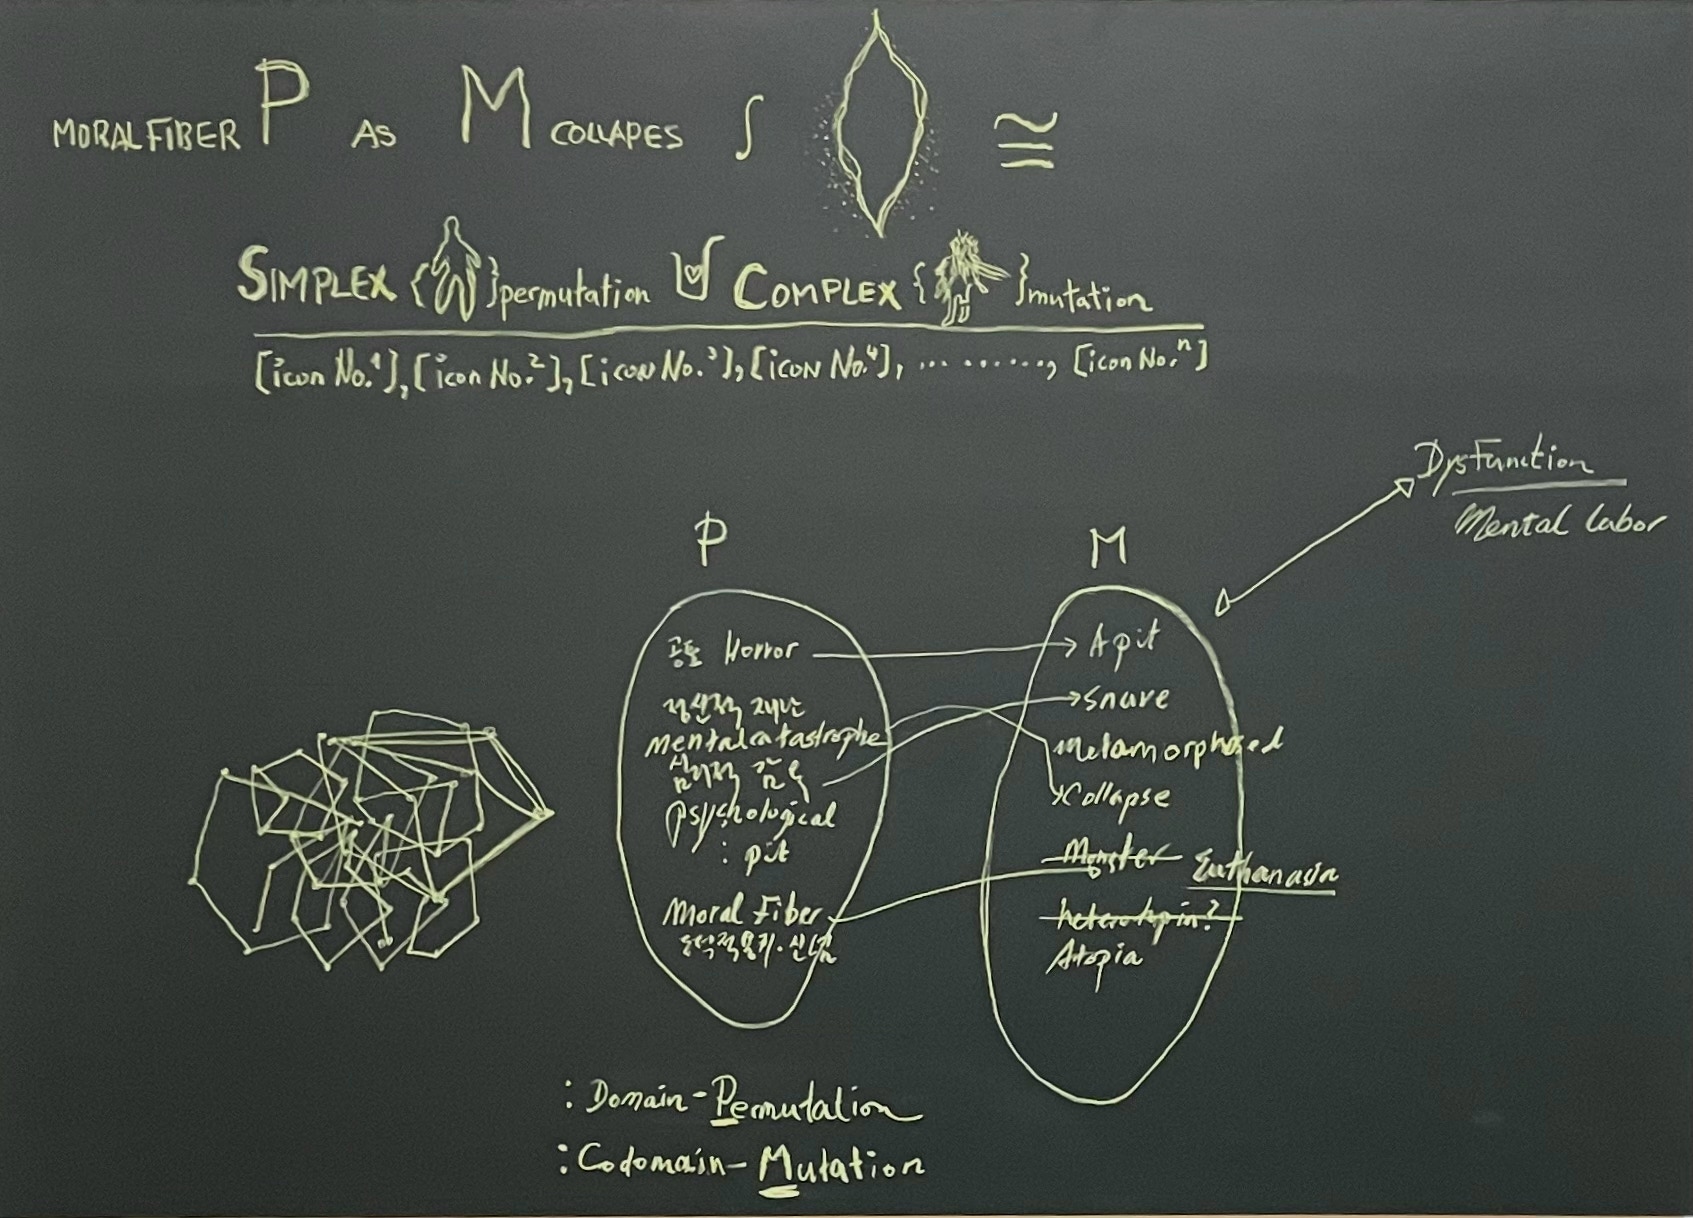 MORAL FIBER P AS M COLLAPES ∫ ≅
SIMPLEX { }permutation COMPLEX { }mutation
[icon No.1], [icon No.2], [icon No.3], [icon No.4], ... ......, [icon No.n]
Dysfunction
Mental labor
P
M
공포 Horror
A pit
정신적 재난
Snare
Mental catastrophe
Metamorphosed
심리적
Psychological
Collapse
: pit
Monster Euthanasia
Moral Fiber
heterotopia?
Atopia
: Domain - Permutation
: Codomain - Mutation